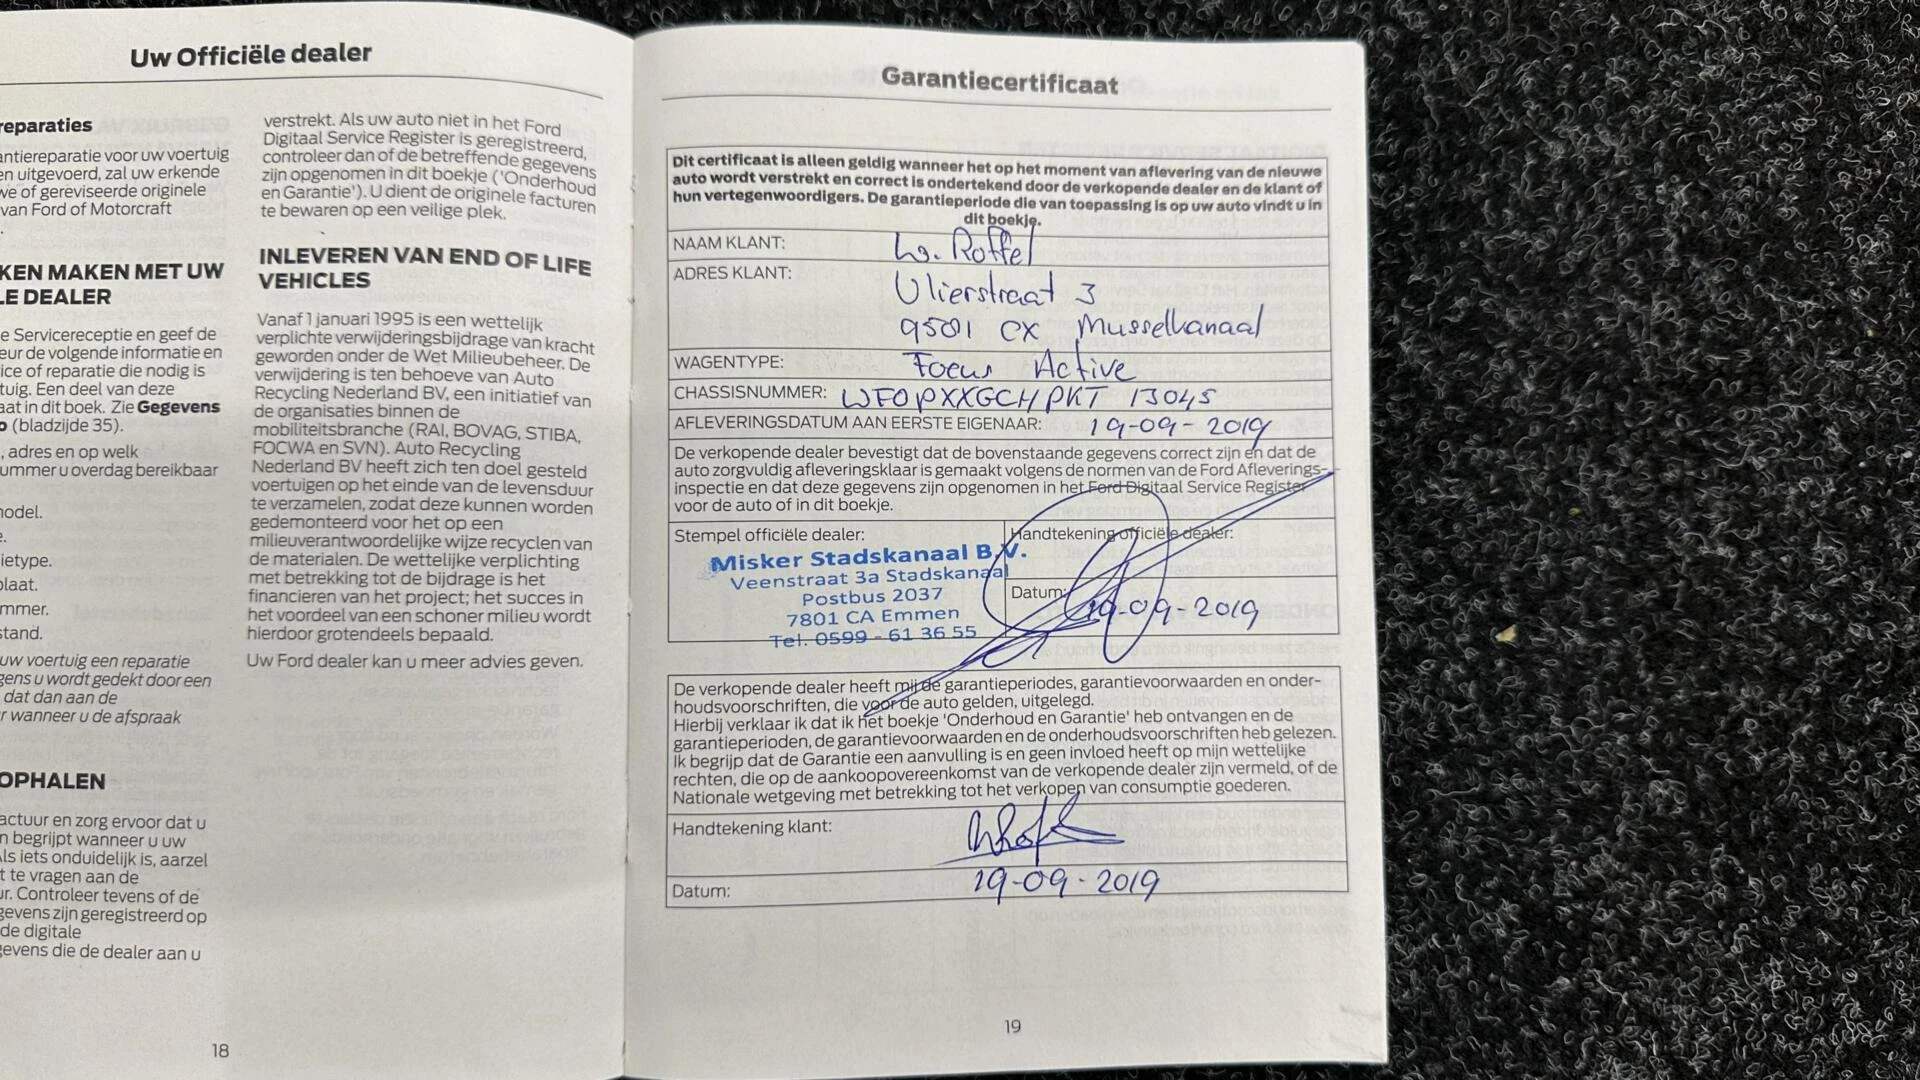 Uw Officiële dealer
reparaties
antiereparatie voor uw voertuig
en uitgevoerd, zal uw erkende
we of gereviseerde originele
van Ford of Motorcraft
.
KEN MAKEN MET UW
LE DEALER
e Servicereceptie en geef de
eur de volgende informatie en
ice of reparatie die nodig is
tuig. Een deel van deze
aat in dit boek. Zie Gegevens
o (bladzijde 35).
, adres en op welk
ummer u overdag bereikbaar
model.
e.
ietype.
plaat.
mmer.
stand.
uw voertuig een reparatie
gens u wordt gedekt door een
dat dan aan de
r wanneer u de afspraak
OPHALEN
actuur en zorg ervoor dat u
n begrijpt wanneer u uw
ls iets onduidelijk is, aarzel
t te vragen aan de
ur. Controleer tevens of de
gevens zijn geregistreerd op
de digitale
gevens die de dealer aan u
verstrekt. Als uw auto niet in het Ford
Digitaal Service Register is geregistreerd,
controleer dan of de betreffende gegevens
zijn opgenomen in dit boekje ('Onderhoud
en Garantie'). U dient de originele facturen
te bewaren op een veilige plek.
INLEVEREN VAN END OF LIFE
VEHICLES
Vanaf 1 januari 1995 is een wettelijk
verplichte verwijderingsbijdrage van kracht
geworden onder de Wet Milieubeheer. De
verwijdering is ten behoeve van Auto
Recycling Nederland BV, een initiatief van
de organisaties binnen de
mobiliteitsbranche (RAI, BOVAG, STIBA,
FOCWA en SVN). Auto Recycling
Nederland BV heeft zich ten doel gesteld
voertuigen op het einde van de levensduur
te verzamelen, zodat deze kunnen worden
gedemonteerd voor het op een
milieuverantwoordelijke wijze recyclen van
de materialen. De wettelijke verplichting
met betrekking tot de bijdrage is het
financieren van het project; het succes in
het voordeel van een schoner milieu wordt
hierdoor grotendeels bepaald.
Uw Ford dealer kan u meer advies geven.
18
Garantiecertificaat
Dit certificaat is alleen geldig wanneer het op het moment van aflevering van de nieuwe
auto wordt verstrekt en correct is ondertekend door de verkopende dealer en de klant of
hun vertegenwoordigers. De garantieperiode die van toepassing is op uw auto vindt u in
dit boekje.
NAAM KLANT: Roffel
ADRES KLANT: Vlierstraat 3
9501 CX Musselkanaal
WAGENTYPE: Focus Active
CHASSISNUMMER: WF0PXXGCHPKT 13045
AFLEVERINGSDATUM AAN EERSTE EIGENAAR: 19-09-2019
De verkopende dealer bevestigt dat de bovenstaande gegevens correct zijn en dat de
auto zorgvuldig afleveringsklaar is gemaakt volgens de normen van de Ford Afleverings-
inspectie en dat deze gegevens zijn opgenomen in het Ford Digitaal Service Register
voor de auto of in dit boekje.
Stempel officiële dealer:
Misker Stadskanaal B.V.
Veenstraat 3a Stadskanaal
Postbus 2037
7801 CA Emmen
Tel. 0599 - 61 36 55
Handtekening officiële dealer:
Datum: 19-09-2019
De verkopende dealer heeft mij de garantieperiodes, garantievoorwaarden en onder-
houdsvoorschriften, die voor de auto gelden, uitgelegd.
Hierbij verklaar ik dat ik het boekje 'Onderhoud en Garantie' heb ontvangen en de
garantieperioden, de garantievoorwaarden en de onderhoudsvoorschriften heb gelezen.
Ik begrijp dat de Garantie een aanvulling is en geen invloed heeft op mijn wettelijke
rechten, die op de aankoopovereenkomst van de verkopende dealer zijn vermeld, of de
Nationale wetgeving met betrekking tot het verkopen van consumptie goederen.
Handtekening klant:
Datum: 19-09-2019
19